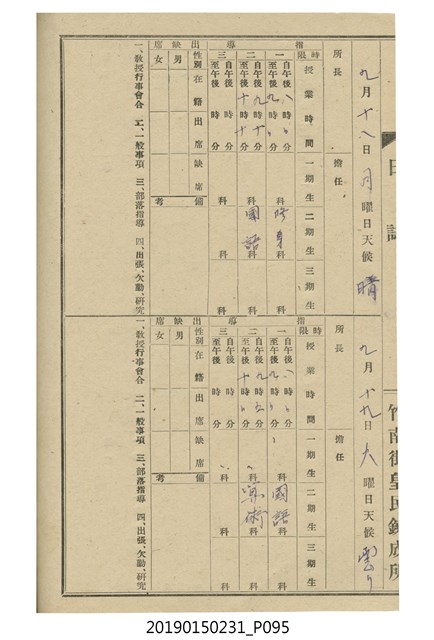 日誌
竹南街皇民鍊成所
九月十八日 月曜日天候 晴
所長 擔任
指導
時限 授業時間 一期生 二期生 三期生
一 自午後八時 分 至午後九時 分 科 修身科 科
二 自午後九時十分 至午後十時十分 科 國語科 科
三 自午後 時 分 至午後 時 分 科 科 科
出缺席
性別 在籍 出席 缺席 備考
男
女
一、教授行事會合 二、一般事項 三、部落指導 四、出張、欠勤、研究
九月十九日 火曜日天候 曇り
所長 擔任
指導
時限 授業時間 一期生 二期生 三期生
一 自午後八時 分 至午後九時 分 科 國語科 科
二 自午後九時 分 至午後十時 分 科 算術科 科
三 自午後 時 分 至午後 時 分 科 科 科
出缺席
性別 在籍 出席 缺席 備考
男
女
一、教授行事會合 二、一般事項 三、部落指導 四、出張、欠勤、研究
20190150231_P095